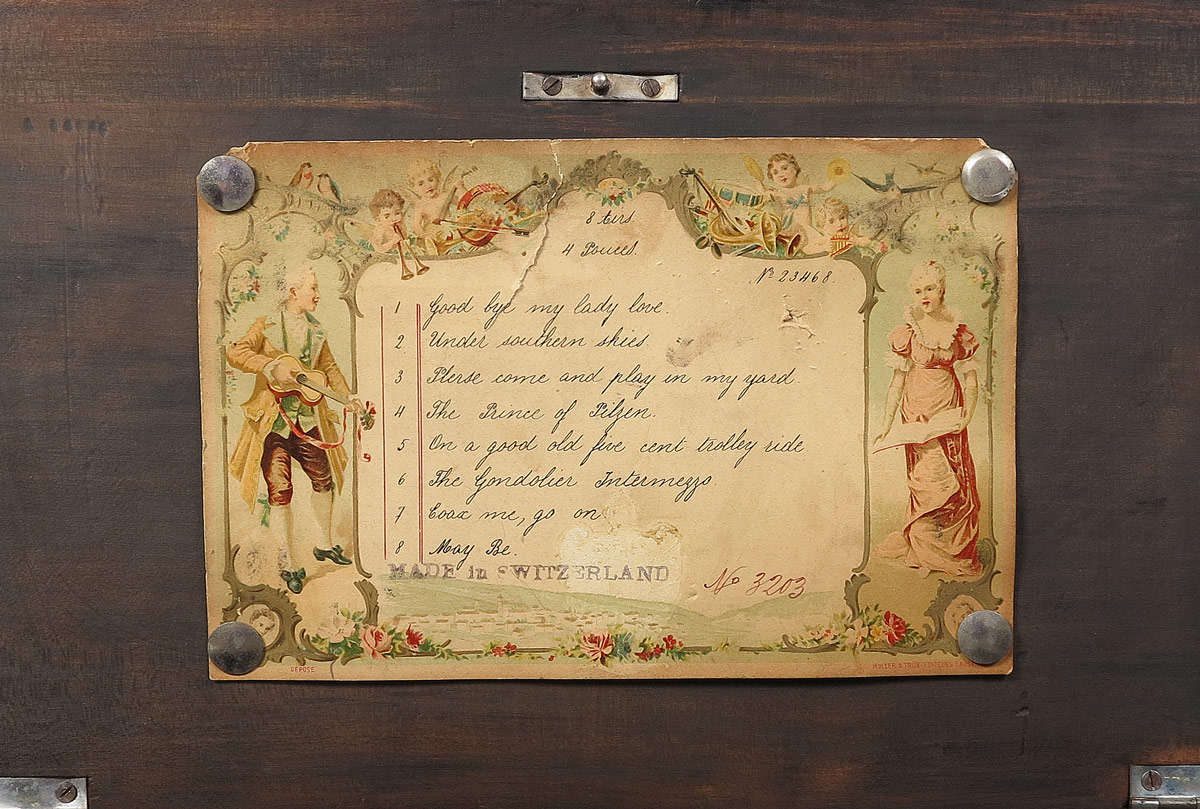 8 Airs.
4 Pouces.
Nº 23468.
1 Good bye my lady love.
2 Under southern skies.
3 Plerse come and play in my yard.
4 The Prince of Pilzen.
5 On a good old five cent trolley ride
6 The Gondolier Intermezzo.
7 Coax me, go on
8 May Be.
MADE in SWITZERLAND
No 3203
DÉPOSÉ
MÜLLER & TRÜB, EDITEURS